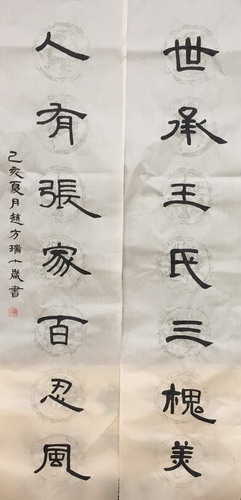 世承王氏三槐美
人有張家百忍風
乙亥夏月趙方瑞十歲書